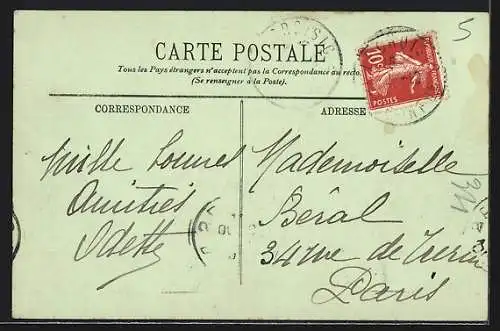 5
CARTE POSTALE
Tous les Pays étrangers n'acceptent pas la Correspondance au recto
(Se renseigner à la Poste).
10c
POSTES
CORRESPONDANCE
ADRESSE
Mille bonnes
Amitiés
Odette
Mademoiselle
Béral
34 rue de
Paris